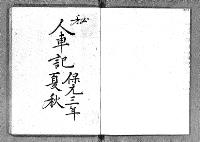 秘
人車記 保元三年
夏秋